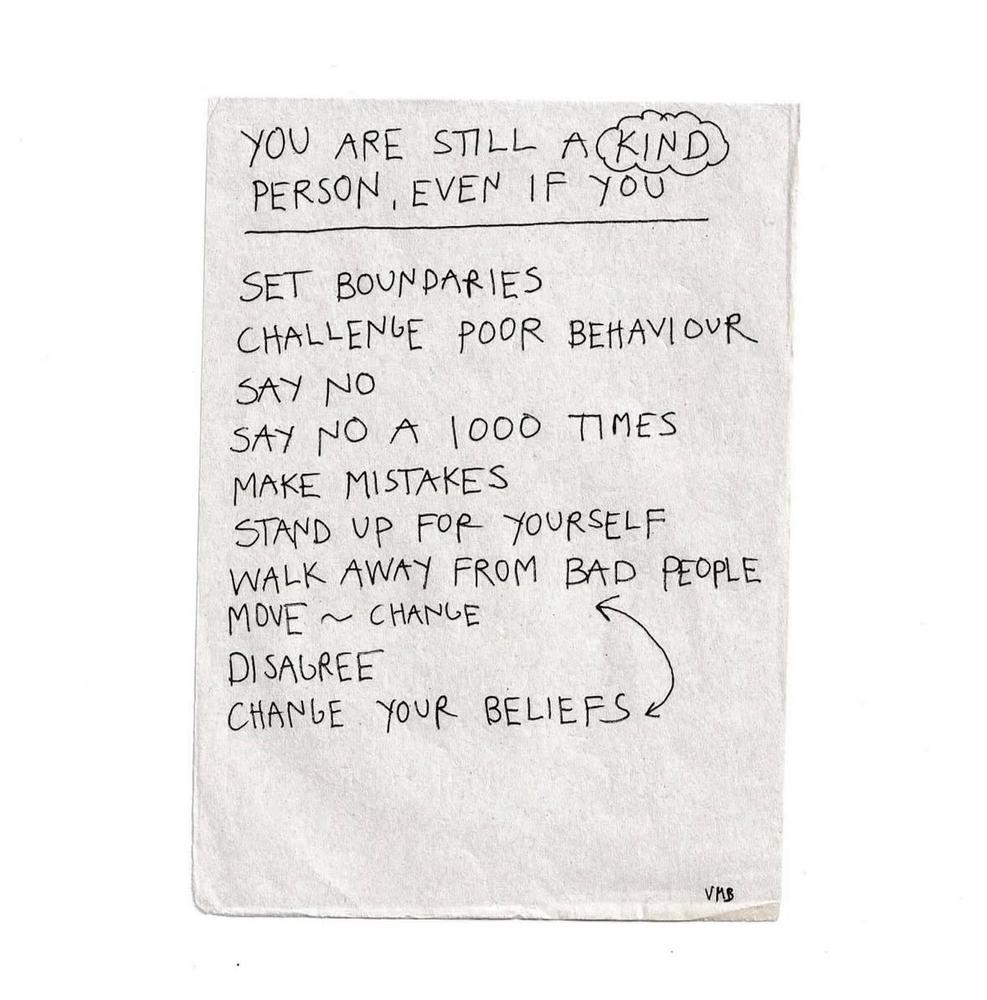 YOU ARE STILL A KIND
PERSON, EVEN IF YOU
SET BOUNDARIES
CHALLENGE POOR BEHAVIOUR
SAY NO
SAY NO A 1000 TIMES
MAKE MISTAKES
STAND UP FOR YOURSELF
WALK AWAY FROM BAD PEOPLE
MOVE ~ CHANGE
DISAGREE
CHANGE YOUR BELIEFS
VMB